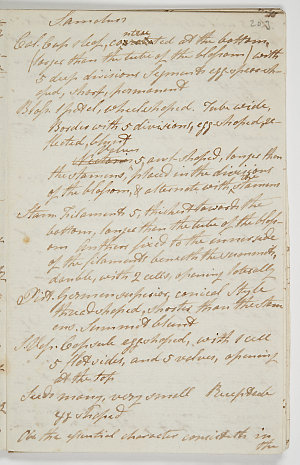 Samolus
Cal. Cup 1 leaf, connected at the bottom,
(larger than the tube of the blossom) with
5 deep divisions Segments egg spear sha-
ped, short, permanent
Bloss. 1 petal, wheel shaped. Tube wide,
Border with 5 divisions, egg shaped, re-
flected, blunt
Valves 5, awl shaped, longer than
the stamens, placed in the divisions
of the blossom, & alternate with Stamens
Stam Filaments 5, thickest towards the
bottom, longer than the tube of the bloss-
om Anthers fixed to the inner side
of the filaments beneath the summits,
double, with 2 cells, opening laterally
Pist. Germen superior, conical Style
thread shaped, shorter than the Stam-
ens. Summit blunt
S. Vess. Capsule egg shaped, with 1 cell
5 flat sides, and 5 valves, opening
at the top
Seeds many, very small Receptacle
egg shaped
Obs the essential character consisteth in
the